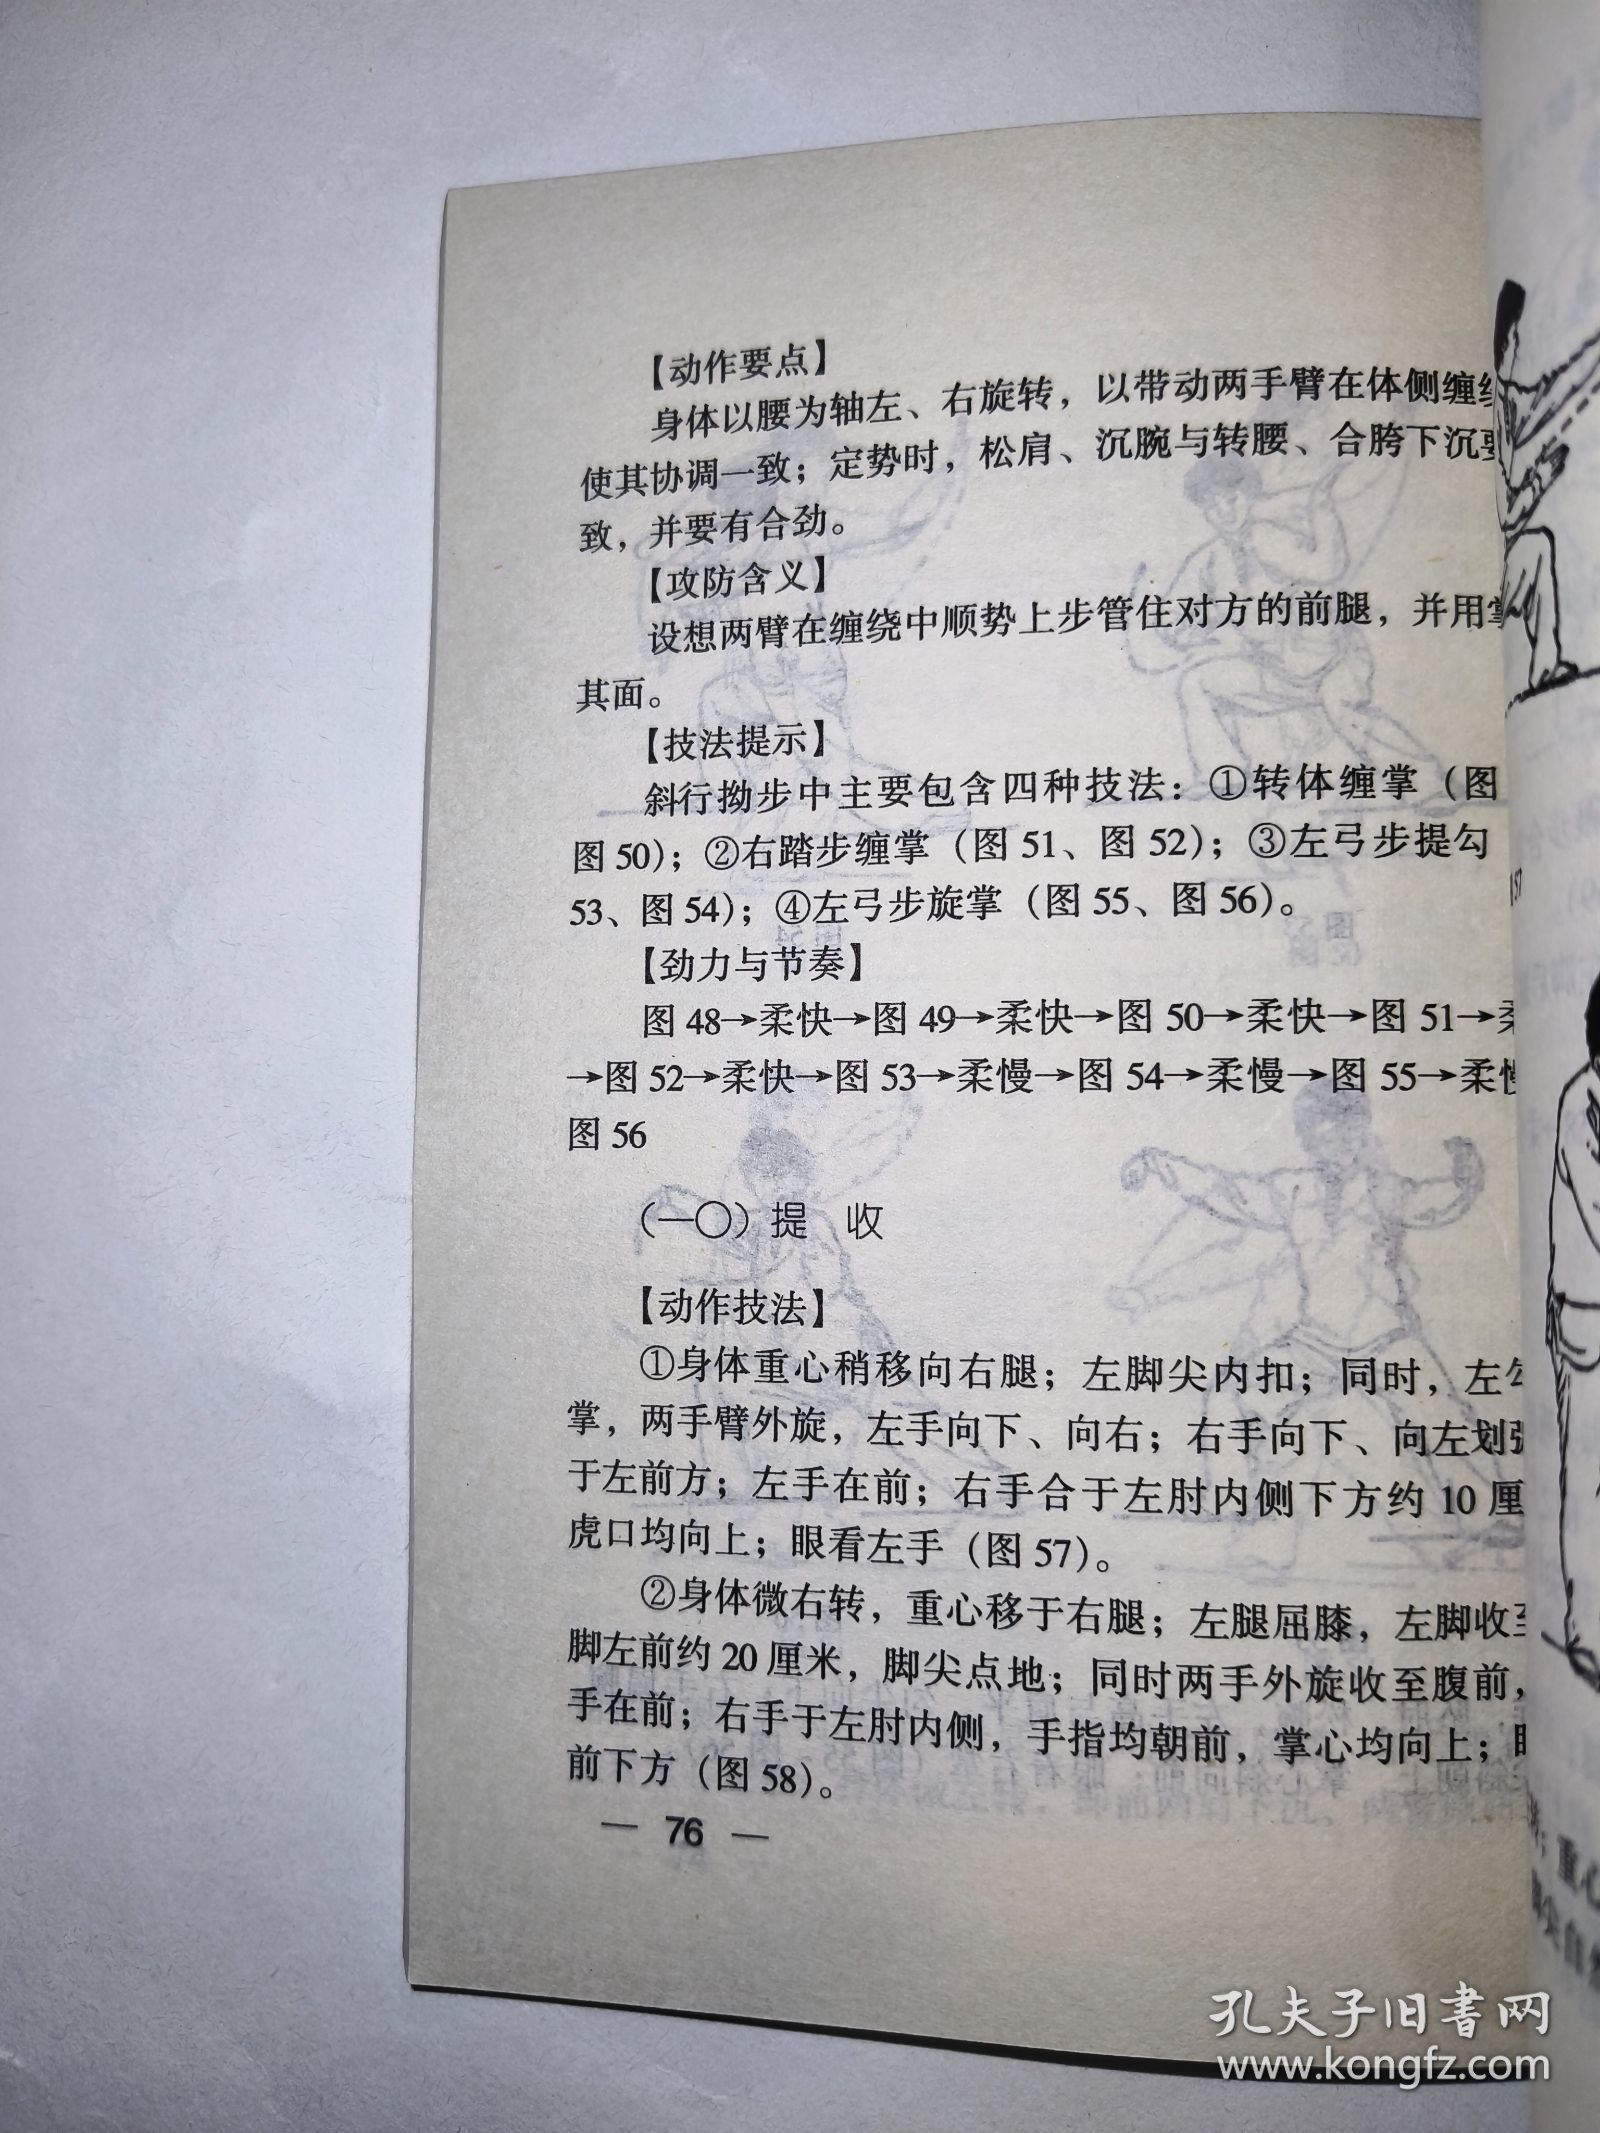 【动作要点】
身体以腰为轴左、右旋转，以带动两手臂在体侧缠
使其协调一致；定势时，松肩、沉腕与转腰、合胯下沉
致，并要有合劲。
【攻防含义】
设想两臂在缠绕中顺势上步管住对方的前腿，并用
其面。
【技法提示】
斜行拗步中主要包含四种技法：①转体缠掌（图
图 50）；②右踏步缠掌（图 51、图 52）；③左弓步提勾
53、图 54）；④左弓步旋掌（图 55、图 56）。
【劲力与节奏】
图 48→柔快→图 49→柔快→图 50→柔快→图 51→
→图 52→柔快→图 53→柔慢→图 54→柔慢→图 55→柔
图 56
（一〇）提 收
【动作技法】
①身体重心稍移向右腿；左脚尖内扣；同时，左
掌，两手臂外旋，左手向下、向右；右手向下、向左划
于左前方；左手在前；右手合于左肘内侧下方约 10 厘
虎口均向上；眼看左手（图 57）。
②身体微右转，重心移于右腿；左腿屈膝，左脚收
脚左前约 20 厘米，脚尖点地；同时两手外旋收至腹前，
手在前；右手于左肘内侧，手指均朝前，掌心均向上；
前下方（图 58）。
— 76 —
57
重心
孔夫子旧书网
www.kongfz.com